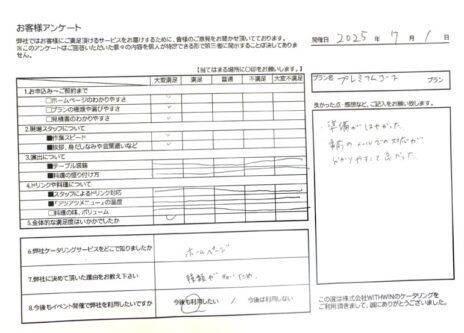 お客様アンケート
弊社ではお客様にご満足頂けるサービスをお届けするために、皆様のご意見をお聞かせ頂いております。
※このアンケートはご回答いただいた個々の内容を個人が特定できる形で第三者に開示することは決してありません。
開催日 2025年 7月 1日
【当てはまる場所に〇印をお願いします。】
大変満足 満足 普通 不満足 大変不満足
プラン名 プレミアムコース プラン
1.お申込み～ご契約まで
□ホームページのわかりやすさ
□プランの種類や選びやすさ
□見積書のわかりやすさ
2.現場スタッフについて
■作業スピード
■挨拶、身だしなみや言葉遣いなど
3.演出について
■テーブル装飾
■料理の盛り付け方
4.ドリンクや料理について
■スタッフによるドリンク対応
■「アツアツメニュー」の温度
□料理の味、ボリューム
5.全体的な満足度はいかがでしたか
良かった点・感想など、ご記入をお願い致します。
準備がはやかった。
事前のメールでの対応が
わかりやすくて良かった。
6.弊社ケータリングサービスをどこで知りましたか
ホームページ
7.弊社に決めて頂いた理由をお教え下さい
8.今後もイベント開催で弊社を利用したいですか
今後も利用したい / 今後は利用しない
この度は株式会社WITHWINのケータリングを
ご利用頂きまして、誠にありがとうございました。